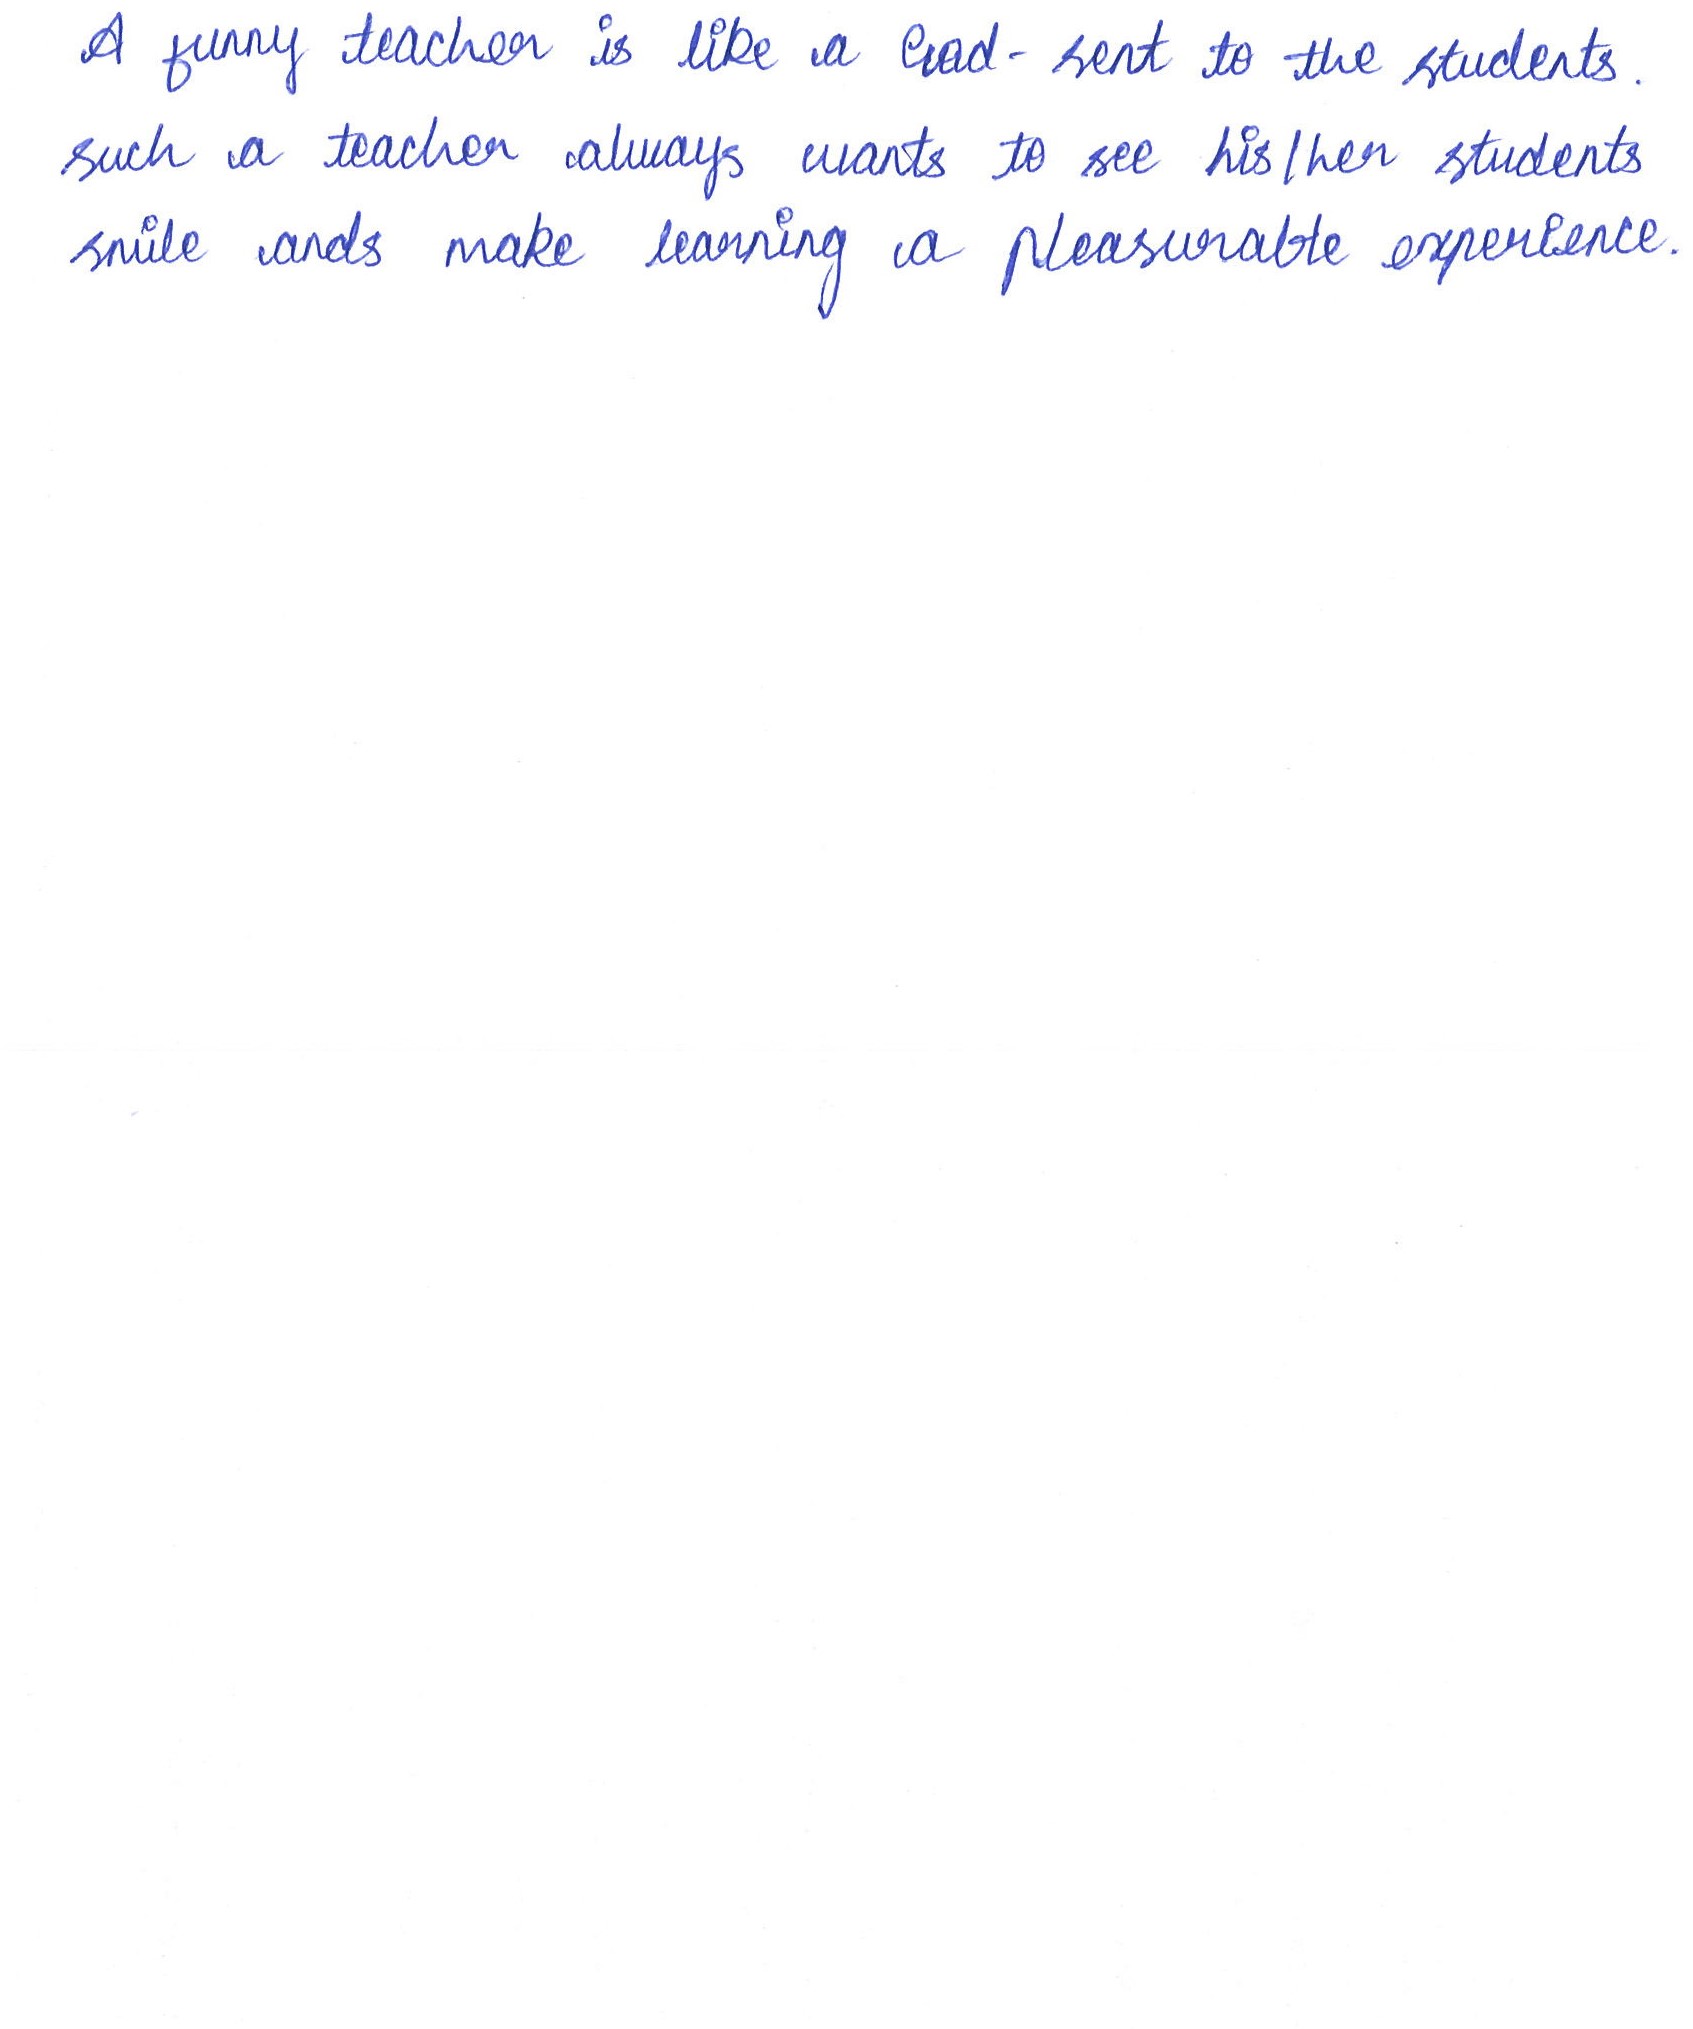 A funny teacher is like a God-sent to the students.
such a teacher always wants to see his/her students
smile ands make learning a pleasurable experience.